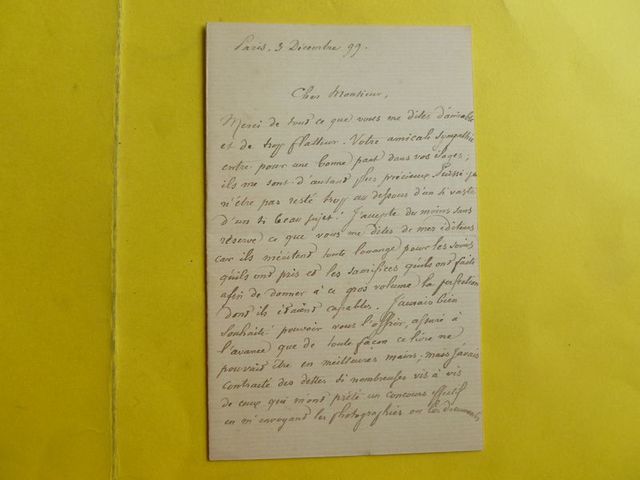 Paris, 3 Décembre 99.
Cher Monsieur,
Merci de tout ce que vous me dites d'aimable
et de trop flatteur. Votre amicale sympathie
entre pour une bonne part dans vos éloges;
ils me sont d'autant plus précieux. Puissé-je
n'être pas resté trop au dessous d'un si vaste
d'un si beau sujet! J'accepte du moins sans
réserve ce que vous me dites de mes éditeurs
car ils méritent toute louange pour les soins
qu'ils ont pris et les sacrifices qu'ils ont faits
afin de donner à ce gros volume la perfection
dont ils étaient capables. J'aurais bien
souhaité pouvoir vous l'offrir, assuré à
l'avance que de toute façon ce livre ne
pouvait être en meilleures mains; mais j'avais
contracté des dettes si nombreuses vis à vis
de ceux qui m'ont prêté un concours effectif
en m'envoyant les photographies ou les documents